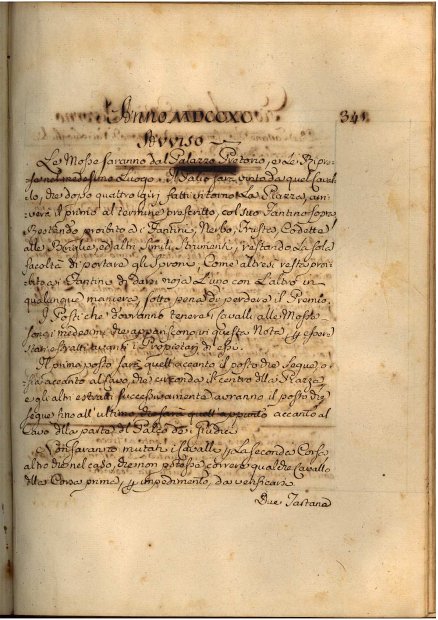 Anno MDCCXC
341
Avviso
Le Mosse saranno dal Palazzo Pretorio, e le Ripre-
se nel medesimo Luogo. Il Palio sarà vinto da quel Caval-
lo, che dopo quattro giri fatti intorno La Piazza, arri-
verà il primo al termine prescritto, col suo Fantino sopra
Restando proibito ai Fantini, Nerbo, Frustes, Codette
alle Briglie, ed altri simili Strumenti, restando La sola
facoltà di portare gli Sproni, Come altresi resta proi-
bito ai Fantini di darsi noja L'uno con L'altro in
qualunque maniera, sotto pena di perdere il Premio.
I Posti che dovranno tenere i Cavalli alle Mosse
son gl'i medesimi che appariscono in questa Nota p essere
stati estratti avanti i Proprietarj di essi.
Il primo posto sarà quell'accanto il posto che segue, o
sia accanto al Cavo che circonda il centro della Piazza
e gli altri estratti successivamente avranno il posto che
segue fino all'ultimo che sarà quell'appunto accanto al
Cavo dlla parte de' Palchi de' i Giudici
Non saranno mutati i Cavalli p La seconda Corsa
altro che nel caso, che non potesse correre qualche Cavallo
dlla Corsa prima, p impedimento, da verificarsi
Due Tastana